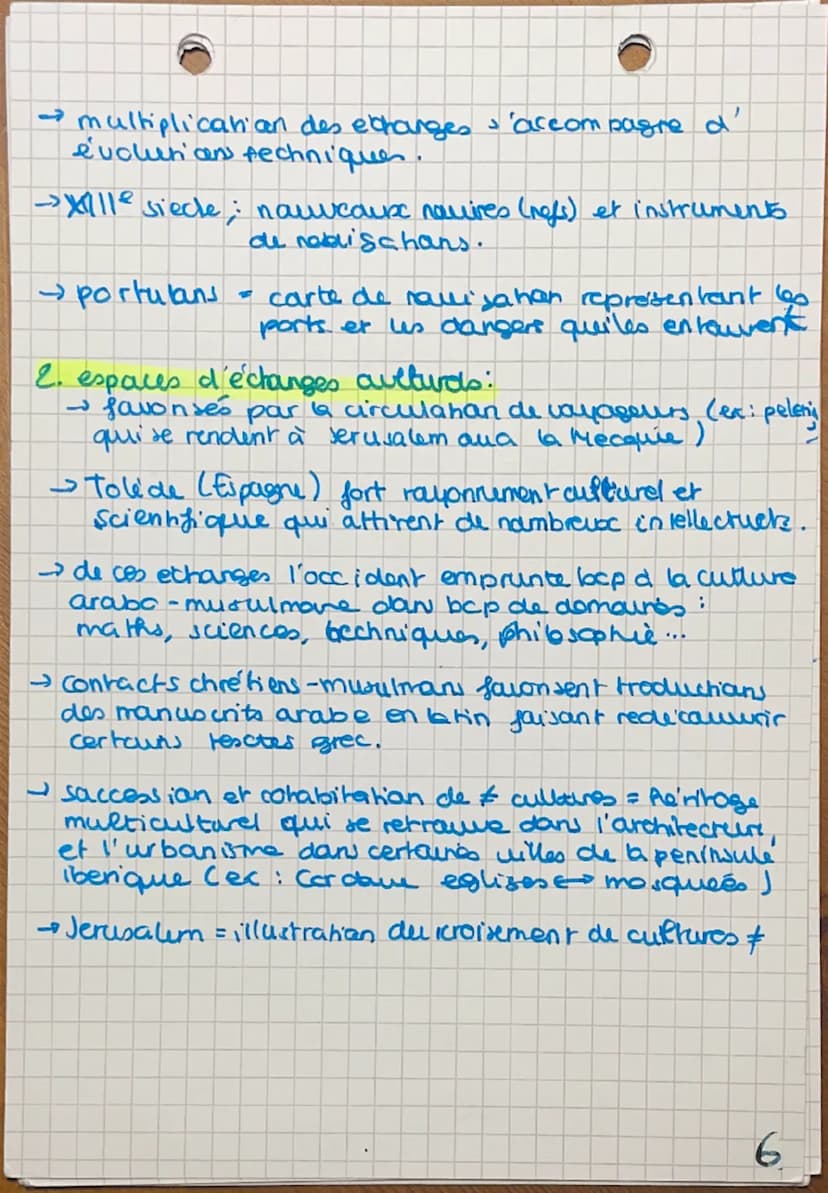 → multiplication des echanges s'accompagne d'
évolutions techniques.
→ XIIIe siecle ; nouveaux navires (nefs) et instruments
de navigations.
→ portulans = carte de navigation représentant les
ports et les dangers qui les entourent
2. espaces d'échanges culturels :
→ favorisés par la circulation de voyageurs (ex : pelerins
qui se rendent à Jerusalem ou a la Mecque)
→ Tolède (Espagne) fort rayonnement culturel et
scientifique qui attirent de nombreux intellectuels.
→ de ces echanges l'occident emprunte bcp à la culture
arabo-musulmane dans bcp de domaines :
maths, sciences, techniques, philosophie...
→ contacts chrétiens-musulmans favorisent traductions
des manuscrits arabe en latin faisant redécouvrir
certains textes grec.
→ saccession et cohabitation de ≠ cultures = héritage
multiculturel qui se retrouve dans l'architecture,
et l'urbanisme dans certaines villes de la péninsule
iberique (ex : Cordoue eglises ↔ mosquées)
→ Jerusalem = illustration du croisement de cultures ≠
6